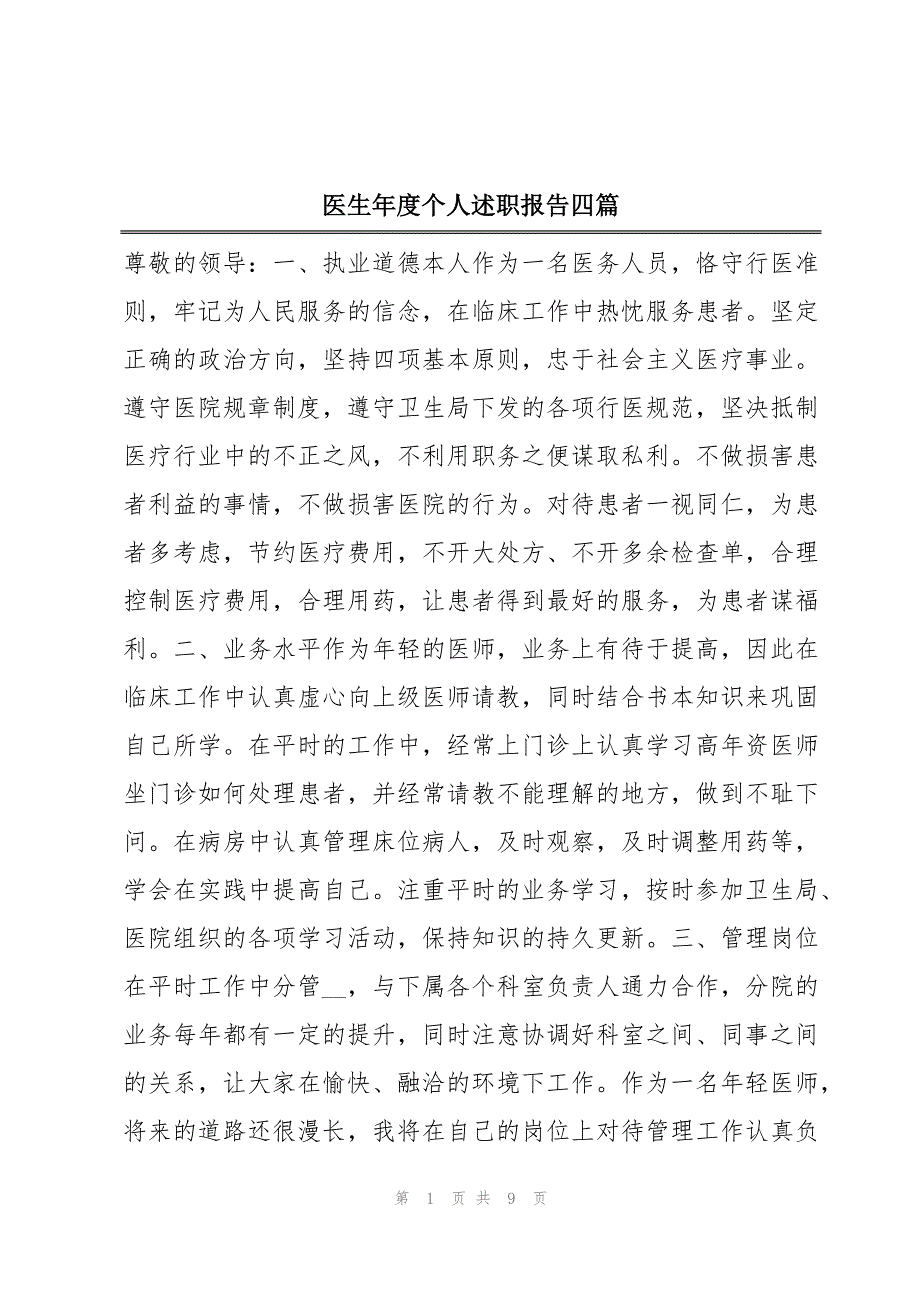 医生年度个人述职报告四篇
尊敬的领导：一、执业道德本人作为一名医务人员，恪守行医准
则，牢记为人民服务的信念，在临床工作中热忱服务患者。坚定
正确的政治方向，坚持四项基本原则，忠于社会主义医疗事业。
遵守医院规章制度，遵守卫生局下发的各项行医规范，坚决抵制
医疗行业中的不正之风，不利用职务之便谋取私利。不做损害患
者利益的事情，不做损害医院的行为。对待患者一视同仁，为患
者多考虑，节约医疗费用，不开大处方、不开多余检查单，合理
控制医疗费用，合理用药，让患者得到最好的服务，为患者谋福
利。二、业务水平作为年轻的医师，业务上有待于提高，因此在
临床工作中认真虚心向上级医师请教，同时结合书本知识来巩固
自己所学。在平时的工作中，经常上门诊上认真学习高年资医师
坐门诊如何处理患者，并经常请教不能理解的地方，做到不耻下
问。在病房中认真管理床位病人，及时观察，及时调整用药等，
学会在实践中提高自己。注重平时的业务学习，按时参加卫生局、
医院组织的各项学习活动，保持知识的持久更新。三、管理岗位
在平时工作中分管__，与下属各个科室负责人通力合作，分院的
业务每年都有一定的提升，同时注意协调好科室之间、同事之间
的关系，让大家在愉快、融洽的环境下工作。作为一名年轻医师，
将来的道路还很漫长，我将在自己的岗位上对待管理工作认真负
第 1 页 共 9 页